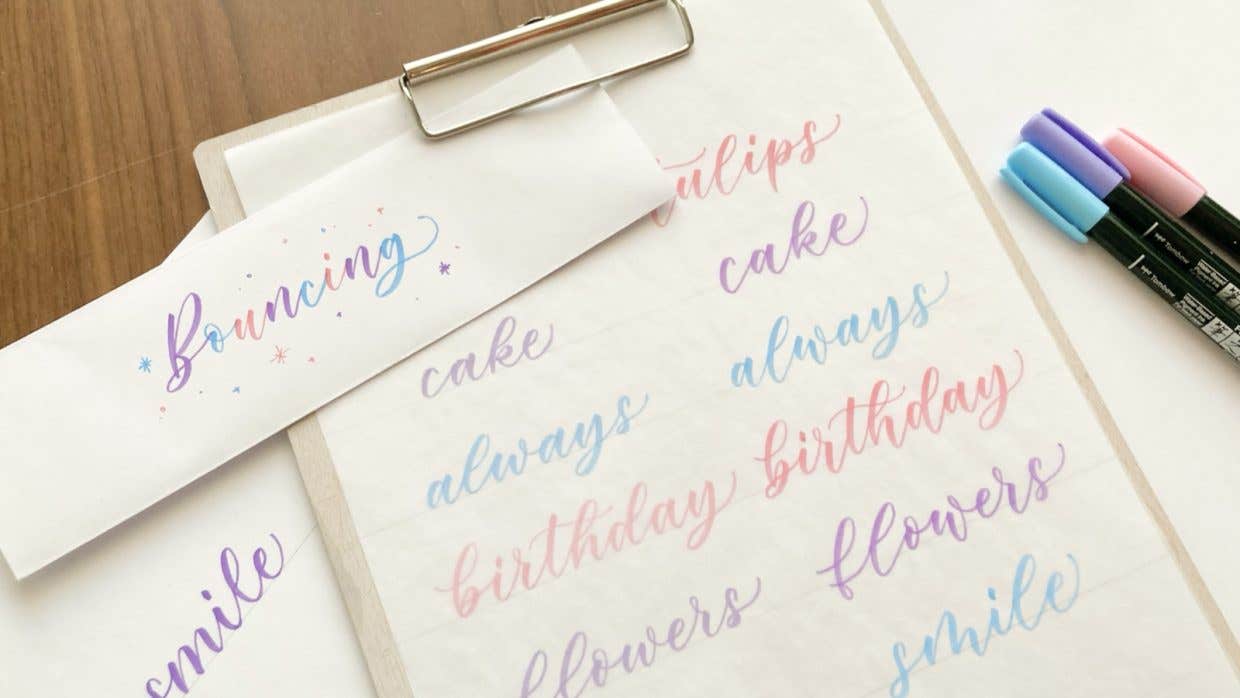 Bouncing
tulips
cake
always
birthday
flowers
smile
cake
always
birthday
flowers
smile
Tombow
Tombow